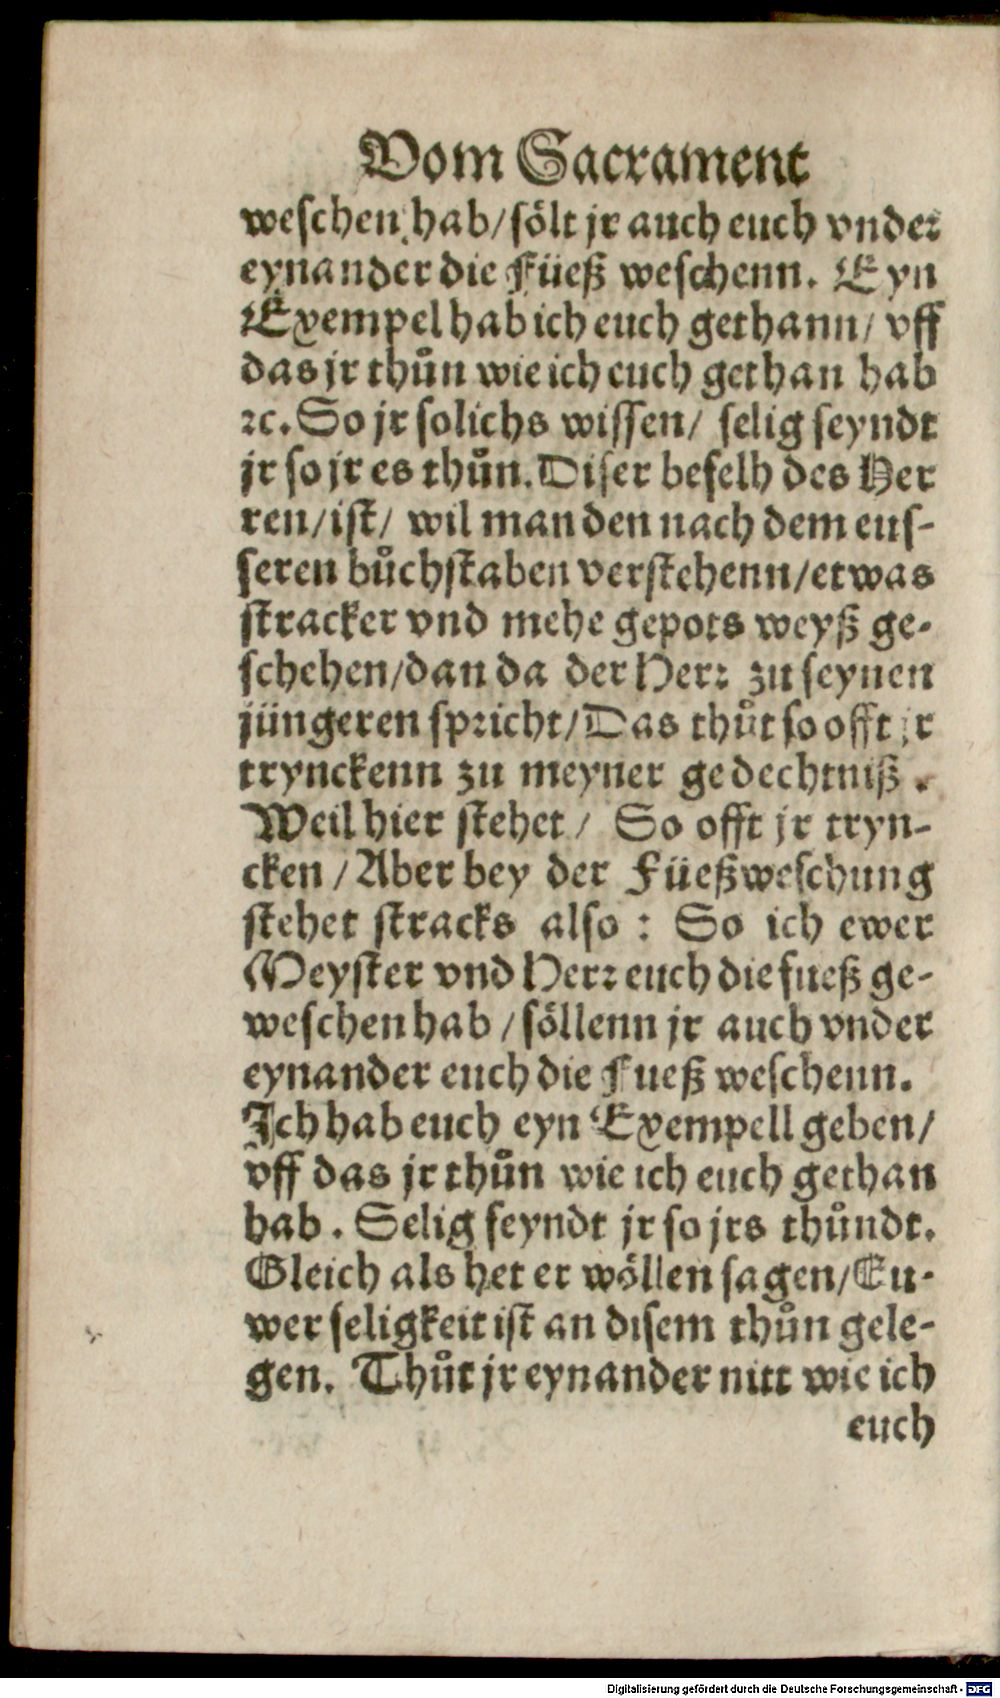 Vom Sacrament
weschen hab/ sölt jr auch euch vnder
eynander die Füeß weschenn. Eyn
Exempel hab ich euch gethann/ vff
das jr thůn wie ich euch gethan hab
ꝛc. So jr solichs wissen/ selig seyndt
jr so jr es thůn. Diser befelh des Her
ren/ ist/ wil man den nach dem eus-
seren bůchstaben verstehenn/ etwas
stracker vnd mehe gepots weyß ge-
schehen/ dan da der Herr zu seynen
jüngeren spricht/ Das thůt so offt jr
trynckenn zu meyner gedechtniß.
Weil hier stehet/ So offt jr tryn-
cken/ Aber bey der Füeßweschung
stehet stracks also: So ich ewer
Meyster vnd Herr euch die fueß ge-
weschen hab/ söllenn jr auch vnder
eynander euch die Fueß weschenn.
Ich hab euch eyn Exempell geben/
vff das jr thůn wie ich euch gethan
hab. Selig seyndt jr so jrs thůndt.
Gleich als het er wöllen sagen/ Eu-
wer seligkeit ist an disem thůn gele-
gen. Thůt jr eynander nitt wie ich
euch
Digitalisierung gefördert durch die Deutsche Forschungsgemeinschaft - DFG